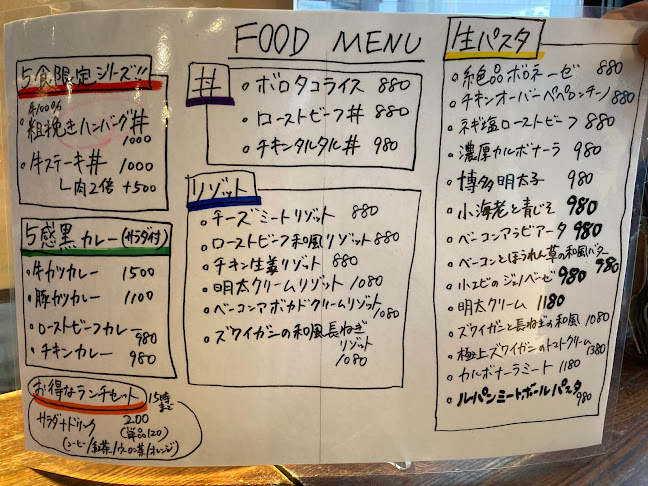 FOOD MENU
5食限定シリーズ!!
牛100%
・粗挽きハンバーグ丼
1000
・牛ステーキ丼 1000
└肉2倍 +500
5感黒カレー(サラダ付)
・牛カツカレー 1500
・豚カツカレー 1100
・ローストビーフカレー
980
・チキンカレー 980
お得なランチセット 15時まで
サラダ+ドリンク 200
(単品120)
(コーヒー/紅茶/ウーロン茶/オレンジ)
丼
・ボロタコライス 880
・ローストビーフ丼 880
・チキンタルタル丼 980
リゾット
・チーズミートリゾット 880
・ローストビーフ和風リゾット 880
・チキン生姜リゾット 880
・明太クリームリゾット 1080
・ベーコンアボカドクリームリゾット
1080
・ズワイガニの和風長ねぎ
リゾット
1080
生パスタ
・絶品ボロネーゼ 880
・チキンオーバーペペロンチーノ 880
・ネギ塩ローストビーフ 880
・濃厚カルボナーラ 980
・博多明太子 980
・小海老と青じそ 980
・ベーコンアラビアータ 980
・ベーコンとほうれん草の和風バター 980
・小エビのジェノベーゼ 980
・明太クリーム 1180
・ズワイガニと長ねぎの和風 1080
・極上ズワイガニのトマトクリーム 1380
・カルボナーラミート 1180
・ルパンミートボールパスタ
980